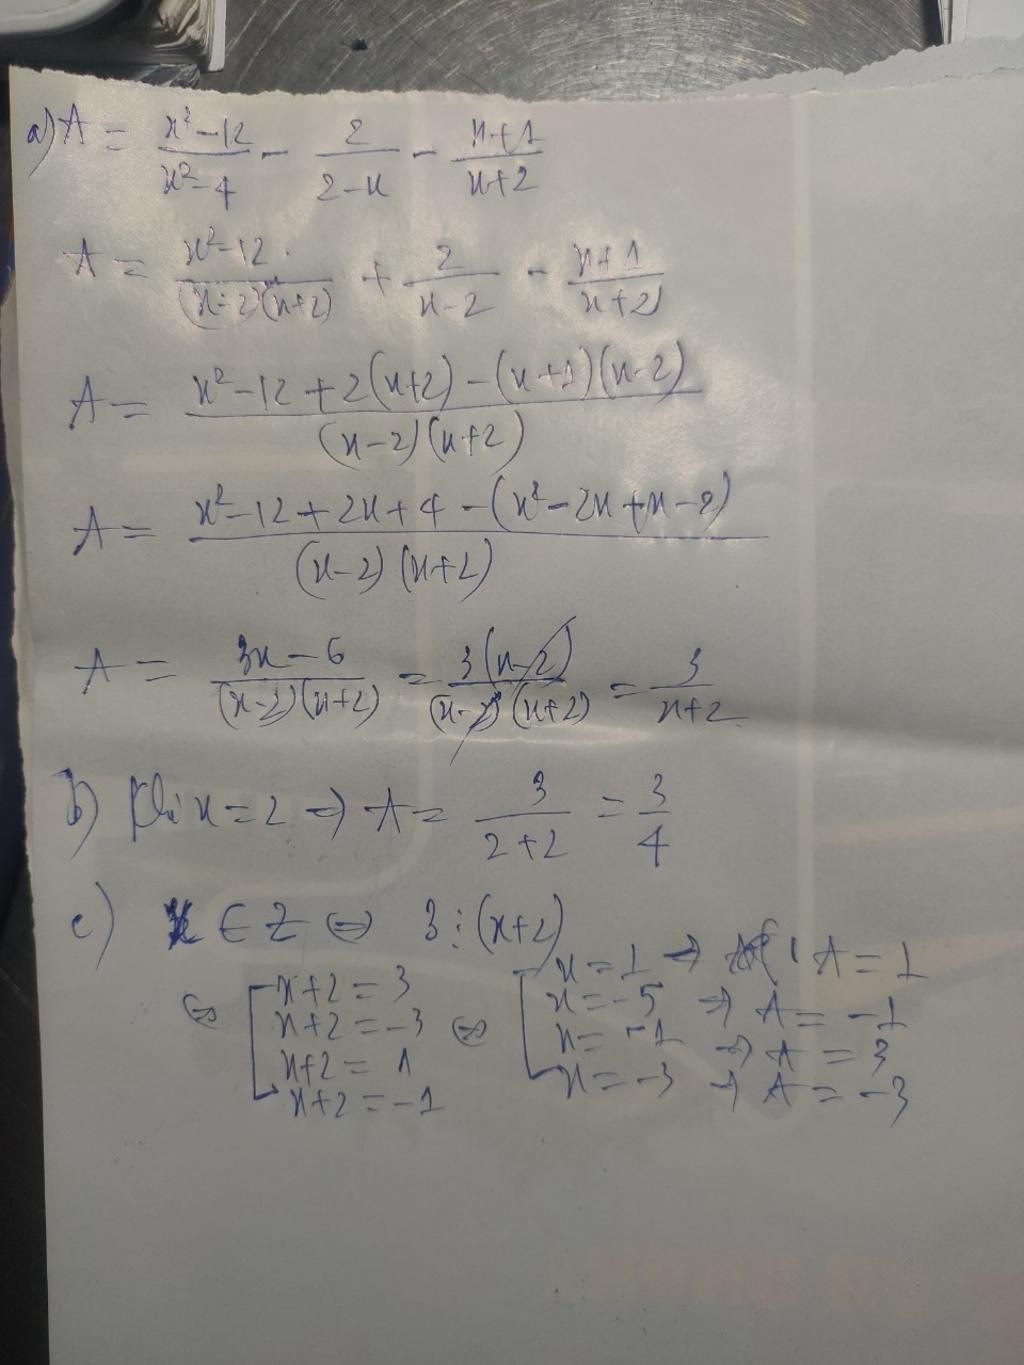 a) A = (x² - 12)/(x² - 4) - 2/(2 - x) - (x + 1)/(x + 2)
A = (x² - 12)/((x - 2)(x + 2)) + 2/(x - 2) - (x + 1)/(x + 2)
A = (x² - 12 + 2(x + 2) - (x + 1)(x - 2))/((x - 2)(x + 2))
A = (x² - 12 + 2x + 4 - (x² - 2x + x - 2))/((x - 2)(x + 2))
A = (3x - 6)/((x - 2)(x + 2)) = 3(x - 2)/((x - 2)(x + 2)) = 3/(x + 2)
b) Khi x = 2 => A = 3/(2 + 2) = 3/4
c) x ∈ Z <=> 3 ⋮ (x + 2)
<=> [ x + 2 = 3 <=> [ x = 1 => A = 1
x + 2 = -3 x = -5 => A = -1
x + 2 = 1 x = -1 => A = 3
x + 2 = -1 x = -3 => A = -3